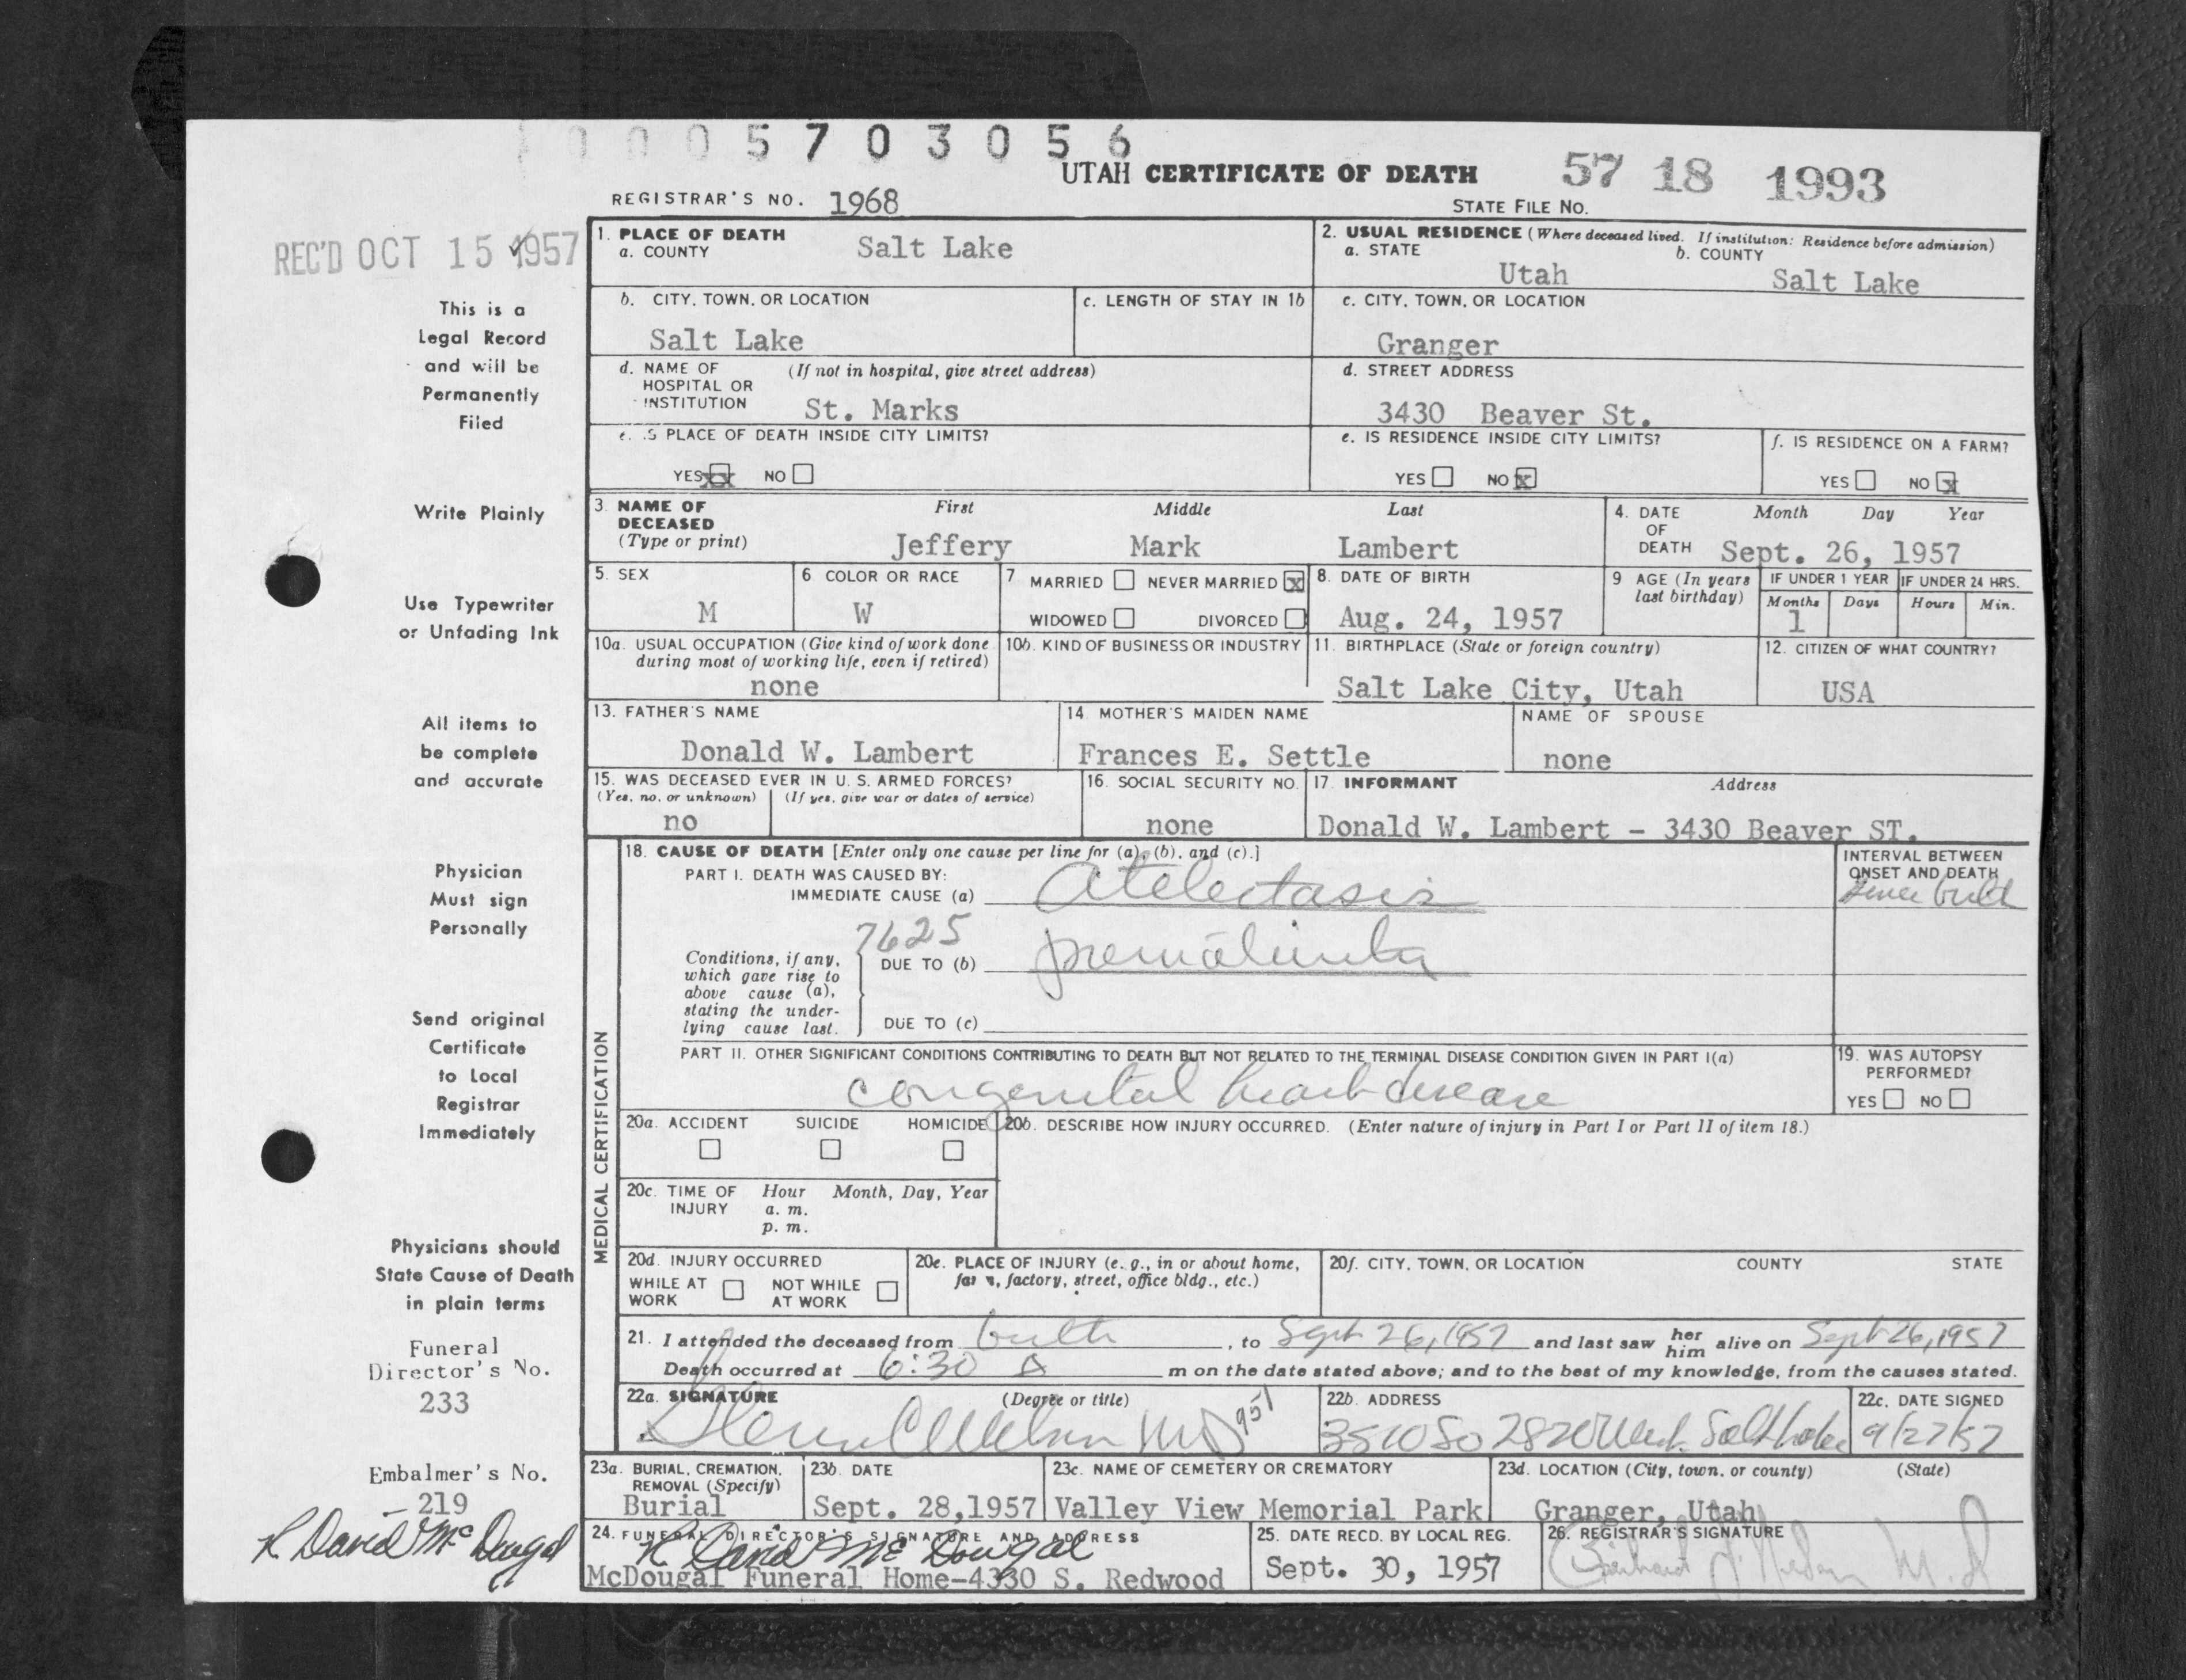 0005703056
UTAH CERTIFICATE OF DEATH 57 18 1993
REGISTRAR'S NO. 1968 STATE FILE NO.
REC'D OCT 15 1957
This is a
Legal Record
and will be
Permanently
Filed
Write Plainly
Use Typewriter
or Unfading Ink
All items to
be complete
and accurate
Physician
Must sign
Personally
Send original
Certificate
to Local
Registrar
Immediately
Physicians should
State Cause of Death
in plain terms
Funeral
Director's No.
233
Embalmer's No.
219
R David McDougal
1. PLACE OF DEATH
a. COUNTY Salt Lake
2. USUAL RESIDENCE (Where deceased lived. If institution: Residence before admission)
a. STATE Utah b. COUNTY Salt Lake
b. CITY, TOWN, OR LOCATION Salt Lake
c. LENGTH OF STAY IN 1b
c. CITY, TOWN, OR LOCATION
Granger
d. NAME OF HOSPITAL OR INSTITUTION (If not in hospital, give street address)
St. Marks
d. STREET ADDRESS
3430 Beaver St.
e. IS PLACE OF DEATH INSIDE CITY LIMITS?
YES XX NO
e. IS RESIDENCE INSIDE CITY LIMITS?
YES NO X
f. IS RESIDENCE ON A FARM?
YES NO X
3. NAME OF DECEASED (Type or print) First Middle Last
Jeffery Mark Lambert
4. DATE OF DEATH Month Day Year
Sept. 26, 1957
5. SEX
M
6 COLOR OR RACE
W
7 MARRIED NEVER MARRIED X
WIDOWED DIVORCED
8. DATE OF BIRTH
Aug. 24, 1957
9 AGE (In years last birthday)
IF UNDER 1 YEAR IF UNDER 24 HRS.
Months Days Hours Min.
1
10a. USUAL OCCUPATION (Give kind of work done during most of working life, even if retired)
none
10b. KIND OF BUSINESS OR INDUSTRY
11. BIRTHPLACE (State or foreign country)
Salt Lake City, Utah
12. CITIZEN OF WHAT COUNTRY?
USA
13. FATHER'S NAME
Donald W. Lambert
14. MOTHER'S MAIDEN NAME
Frances E. Settle
NAME OF SPOUSE
none
15. WAS DECEASED EVER IN U. S. ARMED FORCES?
(Yes, no, or unknown) (If yes, give war or dates of service)
no
16. SOCIAL SECURITY NO.
none
17. INFORMANT Address
Donald W. Lambert - 3430 Beaver ST.
MEDICAL CERTIFICATION
18. CAUSE OF DEATH [Enter only one cause per line for (a), (b), and (c).]
PART I. DEATH WAS CAUSED BY:
IMMEDIATE CAUSE (a) Atelectasis
INTERVAL BETWEEN ONSET AND DEATH
since birth
7625
Conditions, if any, which gave rise to above cause (a), stating the underlying cause last.
DUE TO (b) prematurity
DUE TO (c)
PART II. OTHER SIGNIFICANT CONDITIONS CONTRIBUTING TO DEATH BUT NOT RELATED TO THE TERMINAL DISEASE CONDITION GIVEN IN PART I(a)
congenital heart disease
19. WAS AUTOPSY PERFORMED?
YES NO
20a. ACCIDENT SUICIDE HOMICIDE
20b. DESCRIBE HOW INJURY OCCURRED. (Enter nature of injury in Part I or Part II of item 18.)
20c. TIME OF INJURY Hour Month, Day, Year
a. m.
p. m.
20d. INJURY OCCURRED
WHILE AT WORK NOT WHILE AT WORK
20e. PLACE OF INJURY (e. g., in or about home, farm, factory, street, office bldg., etc.)
20f. CITY, TOWN, OR LOCATION COUNTY STATE
21. I attended the deceased from birth, to Sept 26, 1957 and last saw her him alive on Sept 26, 1957
Death occurred at 6:30 A m on the date stated above; and to the best of my knowledge, from the causes stated.
22a. SIGNATURE (Degree or title)
MD
22b. ADDRESS
3510 So 2820 West Salt Lake
22c. DATE SIGNED
9/27/57
23a. BURIAL, CREMATION, REMOVAL (Specify)
Burial
23b. DATE
Sept. 28, 1957
23c. NAME OF CEMETERY OR CREMATORY
Valley View Memorial Park
23d. LOCATION (City, town, or county) (State)
Granger, Utah
24. FUNERAL DIRECTOR'S SIGNATURE AND ADDRESS
R David McDougal
McDougal Funeral Home-4330 S. Redwood
25. DATE RECD. BY LOCAL REG.
Sept. 30, 1957
26. REGISTRAR'S SIGNATURE
M.D.